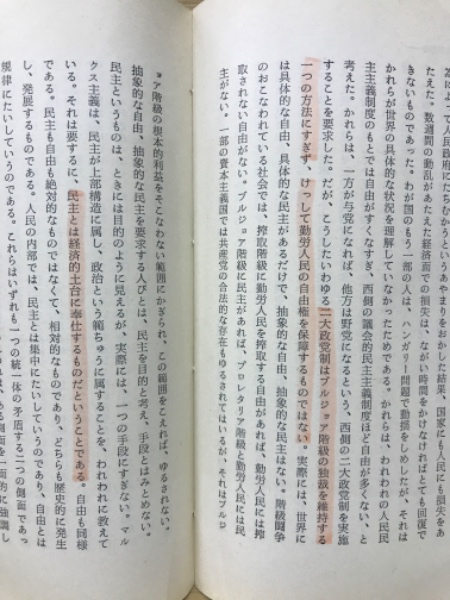 為によって人民政府にたちむかうというあやまりをおかした結果、国家にも人民にも損失をあ
たえた。数週間の動乱があたえた経済面での損失は、ながい時間をかけなければとても回復で
きないものであった。わが国のもう一部の人は、ハンガリー問題で動揺をしめしたが、それは
かれらが世界の具体的な状況を理解していなかったためである。かれらは、われわれの人民民
主主義制度のもとでは自由がすくなすぎ、西側の議会的民主主義制度ほど自由が多くない、と
考えた。かれらは、一方が与党になれば、他方は野党になるという、西側の二大政党制を実施
することを要求した。だが、こうしたいわゆる二大政党制はブルジョア階級の独裁を維持する
一つの方法にすぎず、けっして勤労人民の自由権を保障するものではない。実際には、世界に
は具体的な自由、具体的な民主があるだけで、抽象的な自由、抽象的な民主はない。階級闘争
のおこなわれている社会では、搾取階級に勤労人民を搾取する自由があれば、勤労人民には搾
取されない自由がない。ブルジョア階級に民主があれば、プロレタリア階級と勤労人民には民
主がない。一部の資本主義国では共産党の合法的な存在もゆるされてはいるが、それはブルジ
ョア階級の根本的利益をそこなわない範囲にかぎられ、この範囲をこえれば、ゆるされない。
抽象的な自由、抽象的な民主を要求する人びとは、民主を目的と考え、手段とはみとめない。
民主というものは、ときには目的のように見えるが、実際には、一つの手段にすぎない。マル
クス主義は、民主が上部構造に属し、政治という範ちゅうに属することを、われわれに教えて
いる。それは要するに、民主とは経済的土台に奉仕するものだということである。自由も同様
である。民主も自由も絶対的なものではなくて、相対的なものであり、どちらも歴史的に発生
し、発展するものである。人民の内部では、民主とは集中にたいしていうのであり、自由とは
規律にたいしていうのである。これらはいずれも一つの統一体の矛盾する二つの側面であっ